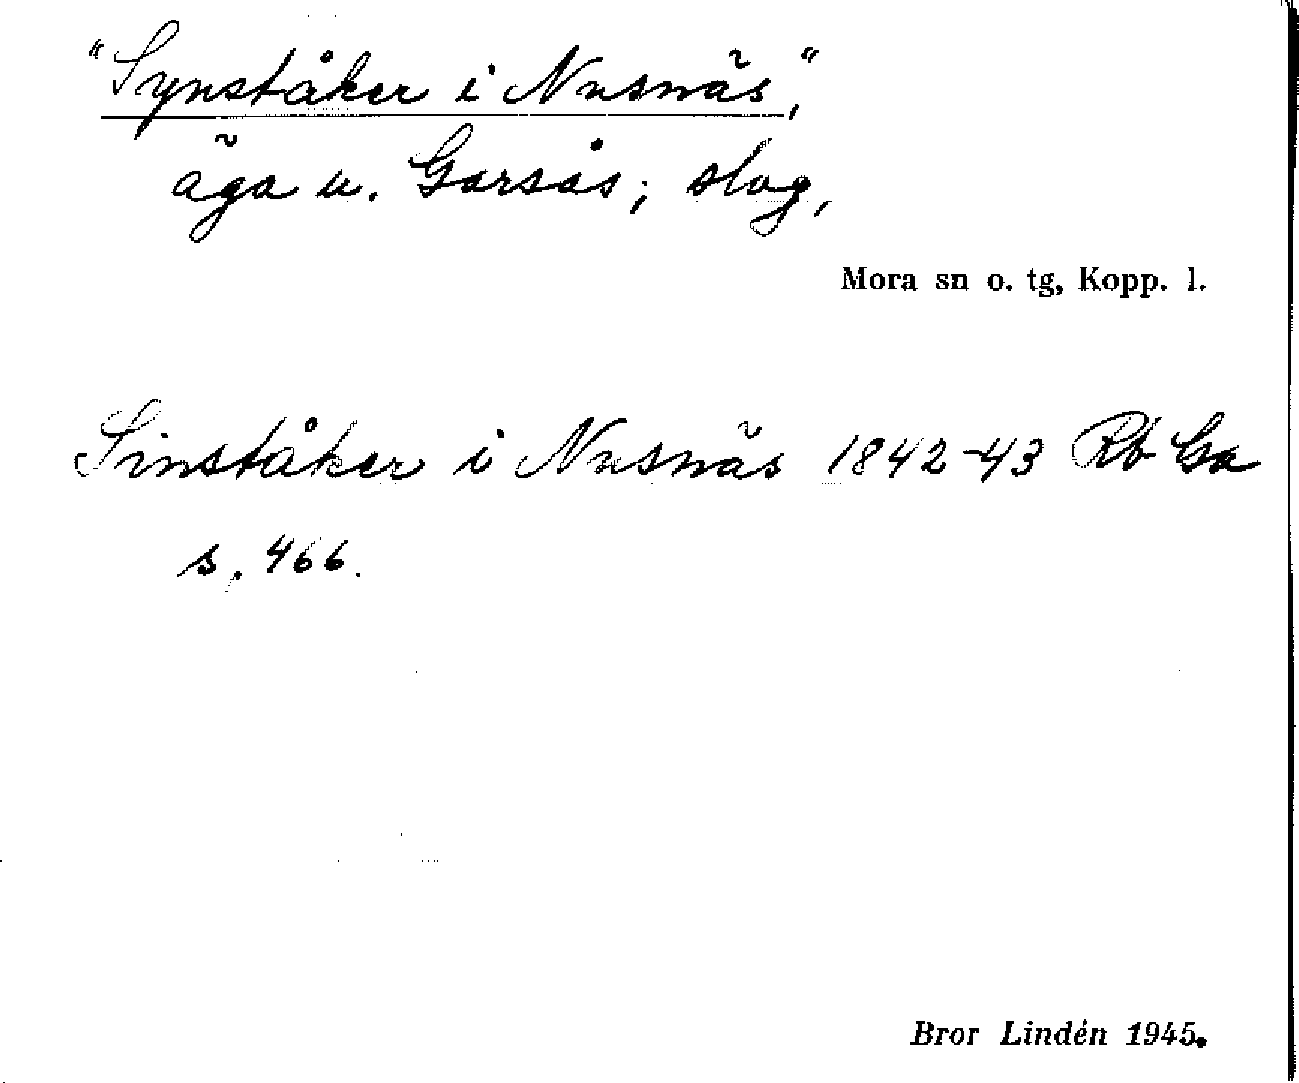 "Synståker i Nusnäs",
äga u. Garsås; slog,
Mora sn o. tg, Kopp. l.
Sinståker i Nusnäs 1842-43 Rb Ga
s. 466.
Bror Lindén 1945.